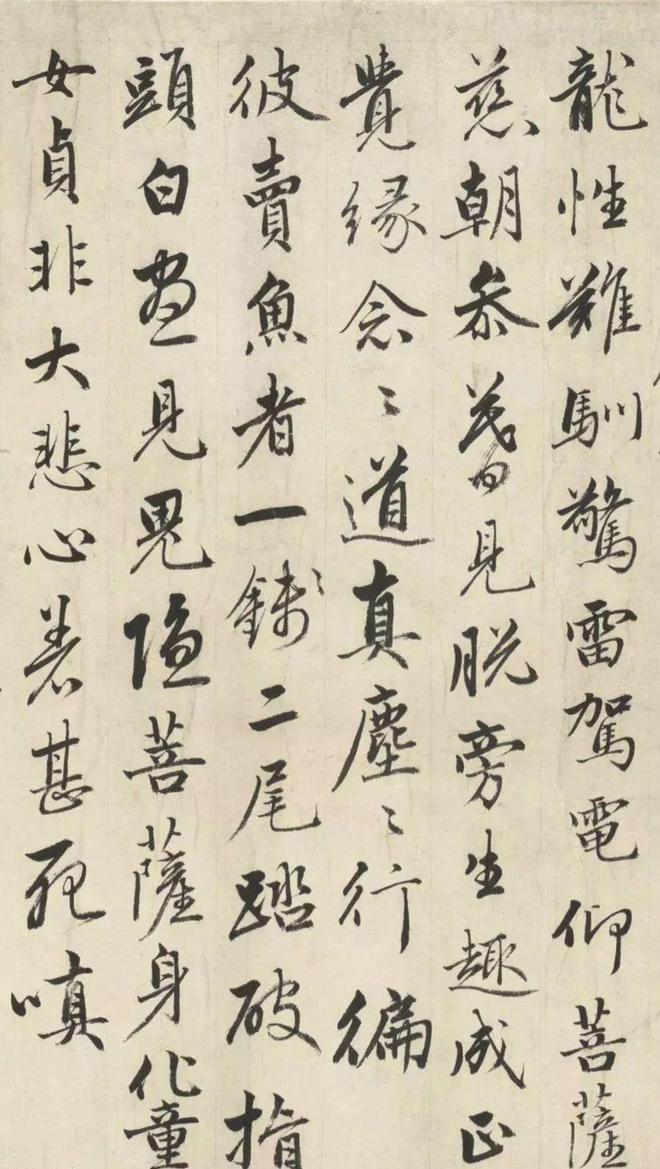 龍性難馴驚雷駕電仰菩薩
慈朝參暮見脫旁生趣成正
覺緣念〻道真塵〻行徧
彼賣魚者一錢二尾踏破指
頭白晝見鬼隱菩薩身化童
女貞非大悲心着甚死嗔